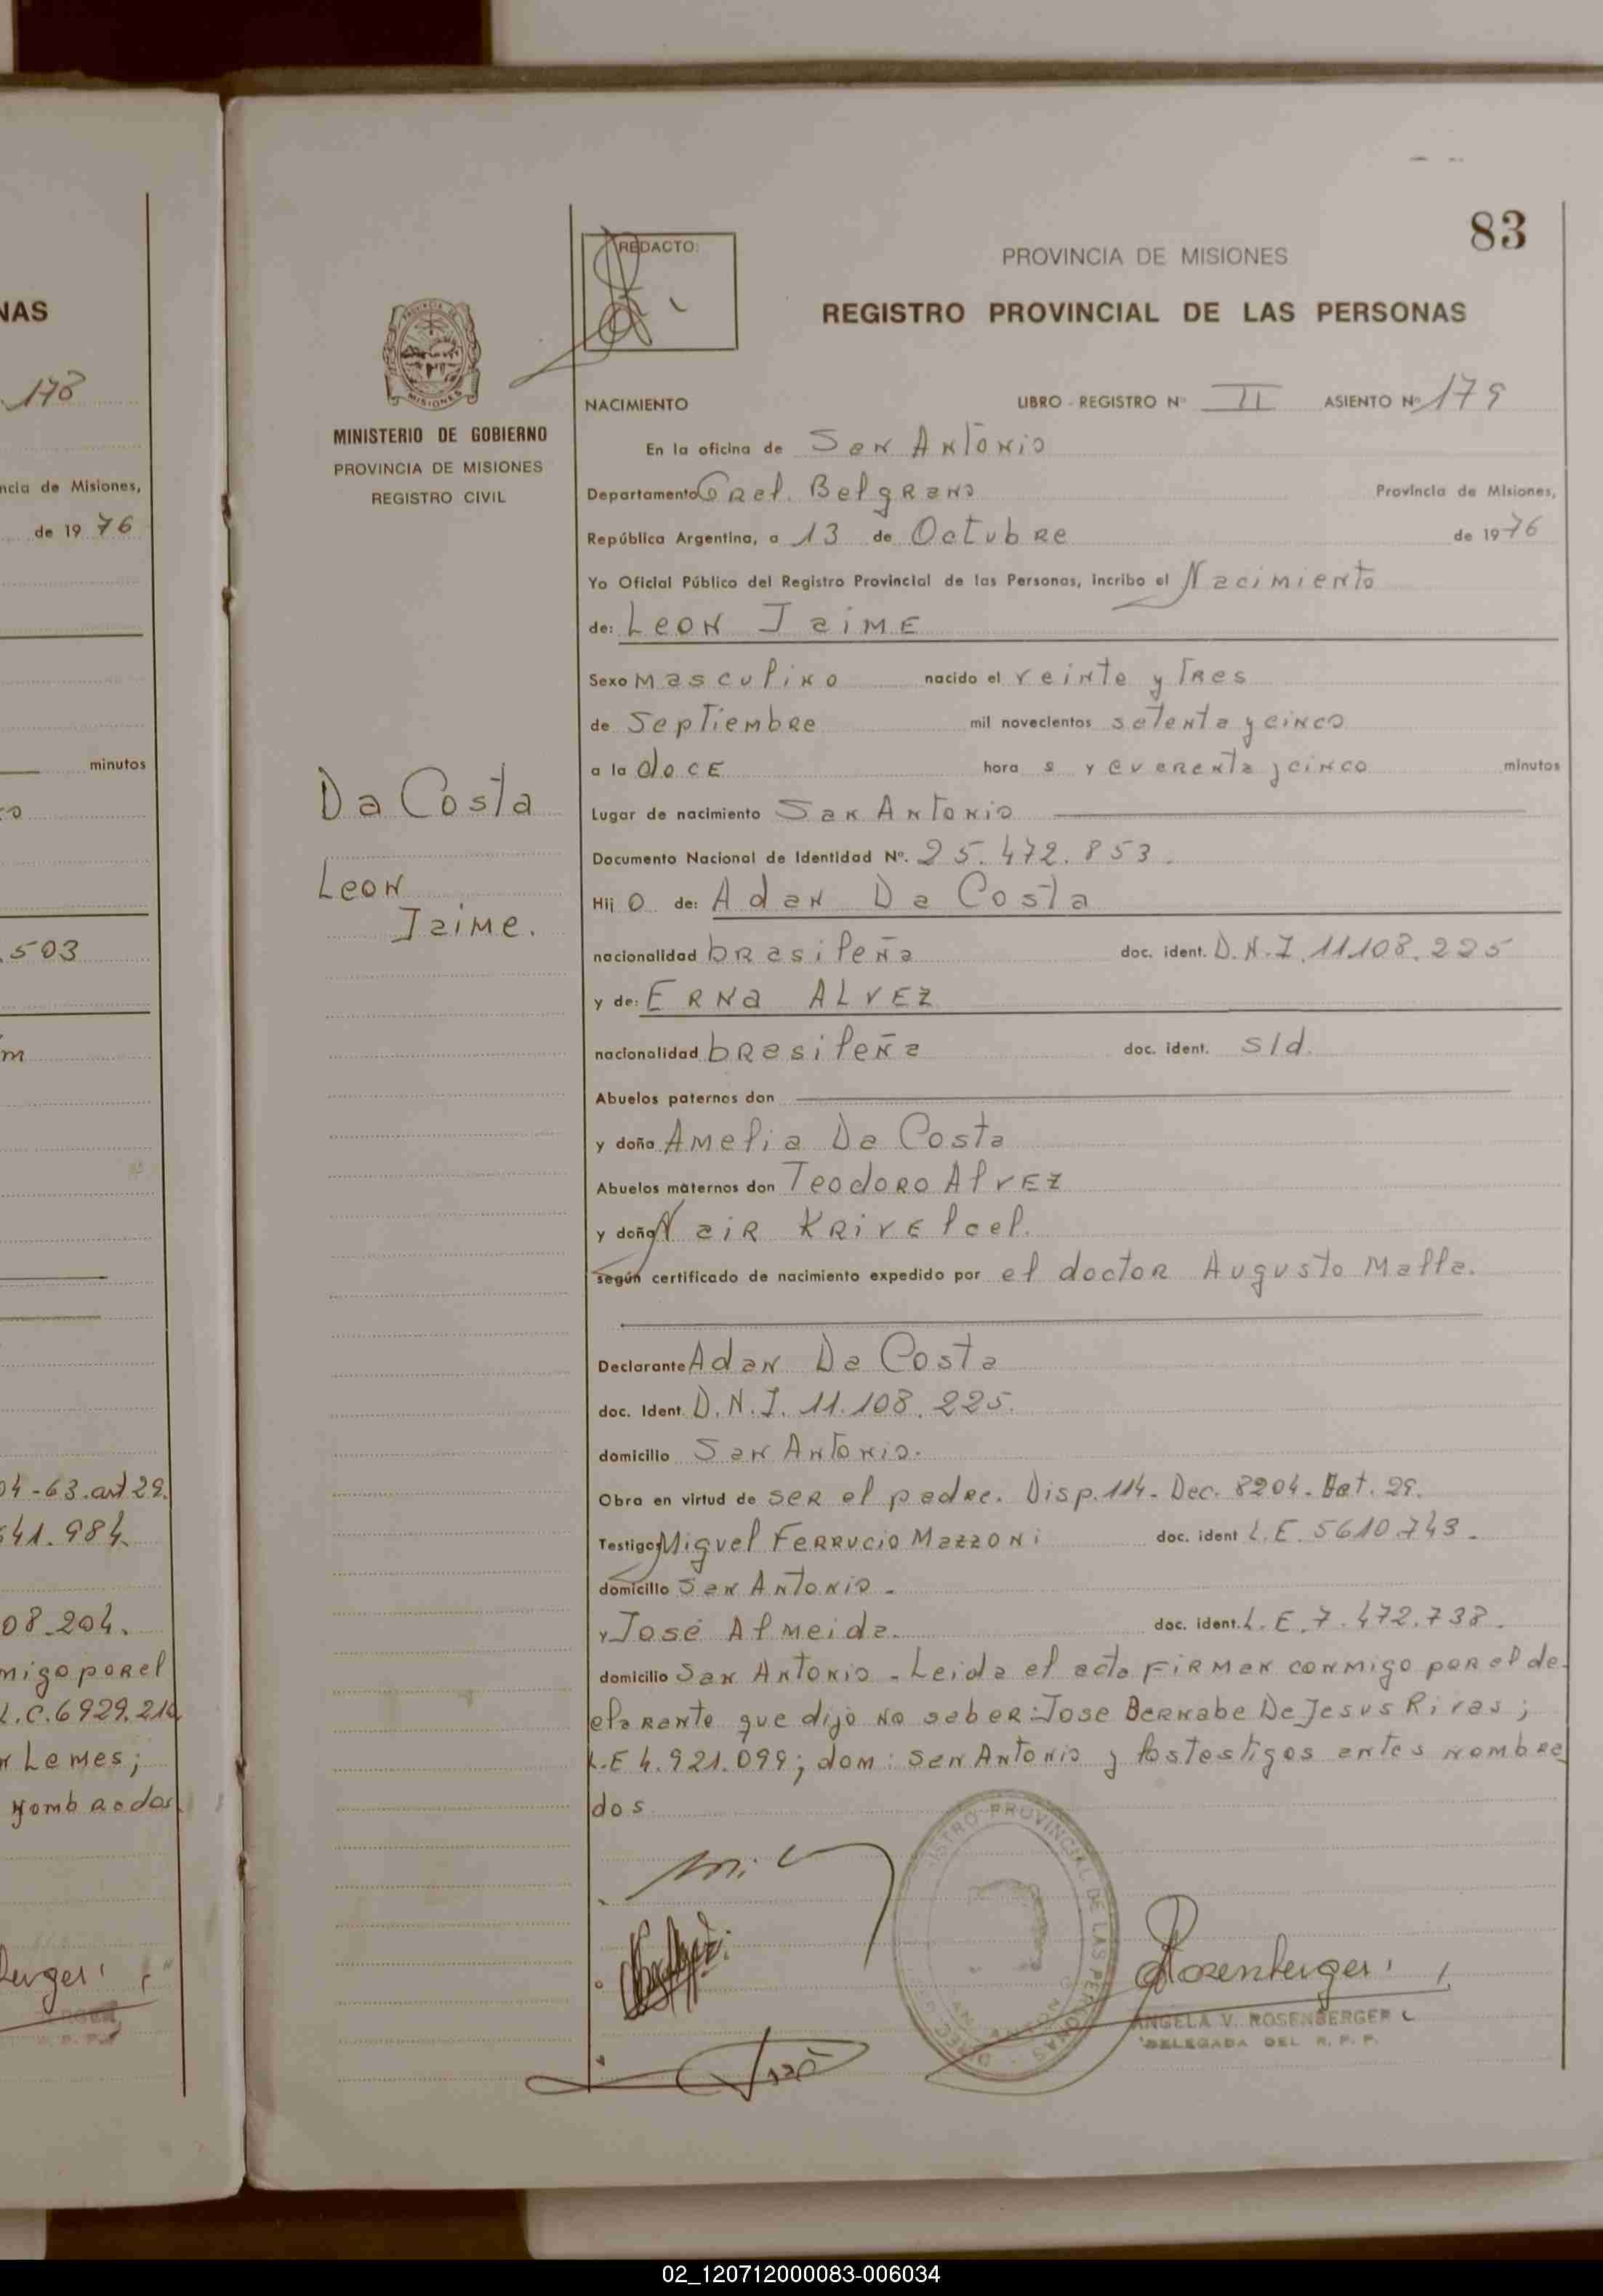 NAS
178
ncia de Misiones,
de 19 76
minutos
503
04-63.art 29.
641.984.
08.204.
migo por el
L.C.6929.214
Lemes;
Nombrados
83
REDACTO:
PROVINCIA DE MISIONES
REGISTRO PROVINCIAL DE LAS PERSONAS
MINISTERIO DE GOBIERNO
PROVINCIA DE MISIONES
REGISTRO CIVIL
Da Costa
Leon
Jaime.
NACIMIENTO LIBRO - REGISTRO Nº II ASIENTO Nº 179
En la oficina de San Antonio
Departamento Gral. Belgrano Provincia de Misiones,
República Argentina, a 13 de Octubre de 1976
Yo Oficial Público del Registro Provincial de las Personas, incribo el Nacimiento
de: Leon Jaime
Sexo masculino nacido el veinte y Tres
de Septiembre mil novecientos setenta y cinco
a la doce hora s y cuarenta y cinco minutos
Lugar de nacimiento San Antonio
Documento Nacional de Identidad Nº. 25.472.853.
Hij o de: Adan Da Costa
nacionalidad brasileña doc. ident. D.N.I. 11.108.225
y de: Erna ALVEZ
nacionalidad brasileña doc. ident. s/d.
Abuelos paternos don
y doña Amelia Da Costa
Abuelos maternos don Teodoro Alvez
y doña Nair Krivelcel.
según certificado de nacimiento expedido por el doctor Augusto Malla.
Declarante Adan Da Costa
doc. Ident. D.N.I. 11.108.225.
domicilio San Antonio.
Obra en virtud de ser el padre. Disp.114- Dec. 8204- Aat. 29.
Testigos Miguel Ferrucio Mazzoni doc. ident L.E. 5610.743-
domicilio San Antonio-
y José Almeida. doc. ident. L.E.7.472.738.
domicilio San Antonio - Leida el acta firman conmigo por el de-
clarante que dijo no saber: Jose Bernabe De Jesus Rivas;
L.E 4.921.099; dom: San Antonio y los testigos antes nombra
dos
Rosenberger
ANGELA V. ROSENBERGER
DELEGADA DEL R. P. P.
02_120712000083-006034